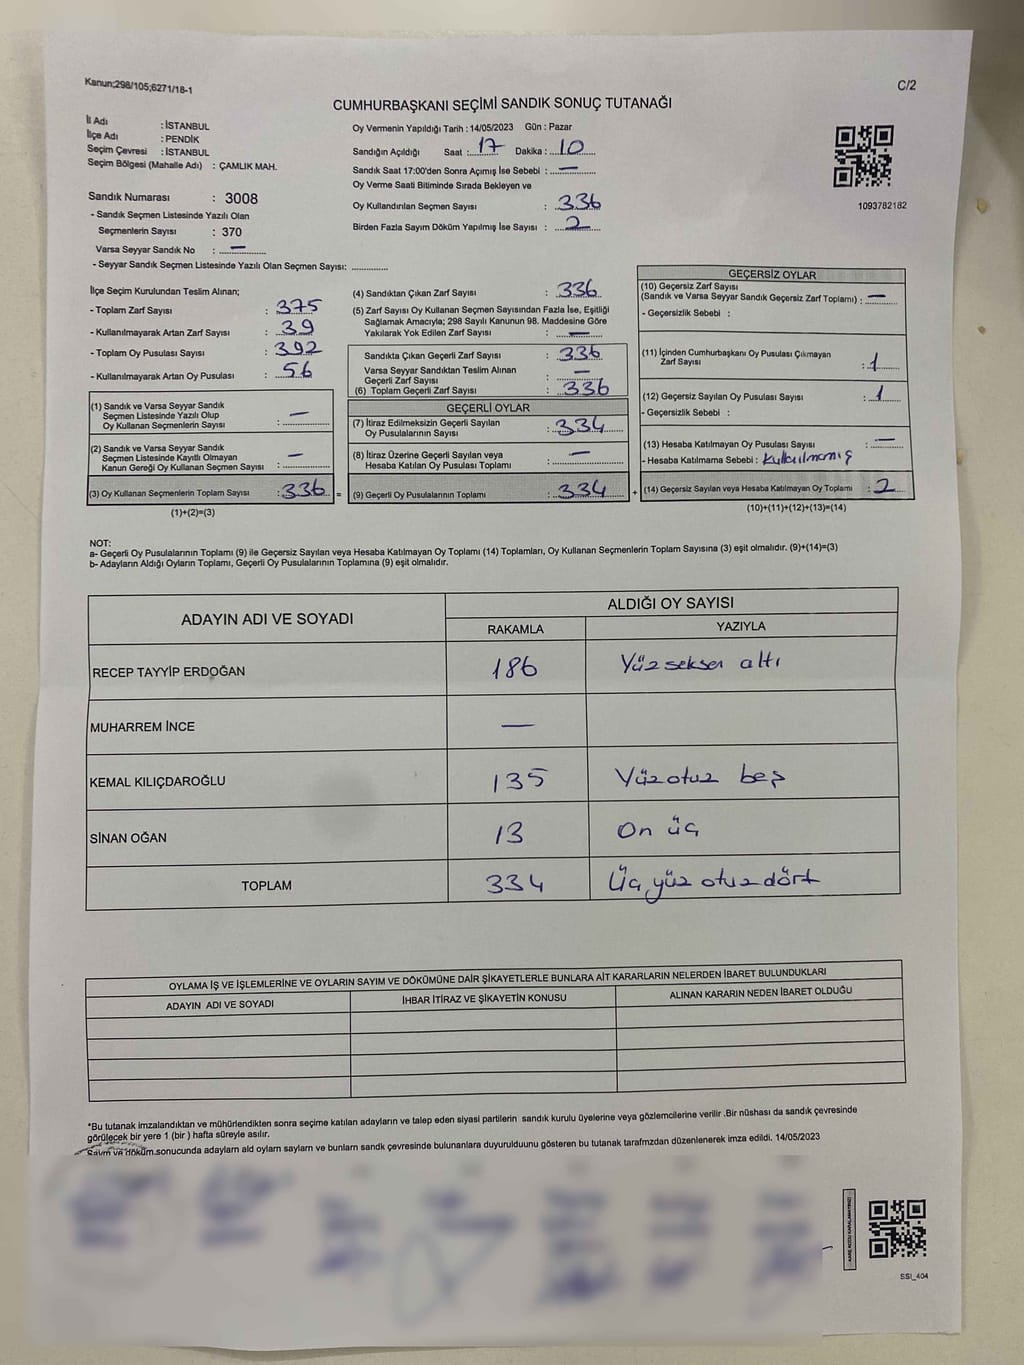 Kanun;298/105;6271/18-1
C/2
CUMHURBAŞKANI SEÇİMİ SANDIK SONUÇ TUTANAĞI
İl Adı : İSTANBUL
İlçe Adı : PENDİK
Seçim Çevresi : İSTANBUL
Seçim Bölgesi (Mahalle Adı) : ÇAMLIK MAH.
Oy Vermenin Yapıldığı Tarih : 14/05/2023 Gün : Pazar
Sandığın Açıldığı Saat : 17 Dakika : 10
Sandık Saat 17:00'den Sonra Açımış İse Sebebi : —
Oy Verme Saati Bitiminde Sırada Bekleyen ve
Oy Kullandırılan Seçmen Sayısı : 336
Birden Fazla Sayım Döküm Yapılmış İse Sayısı : 2
1093782182
Sandık Numarası : 3008
- Sandık Seçmen Listesinde Yazılı Olan
Seçmenlerin Sayısı : 370
Varsa Seyyar Sandık No : —
- Seyyar Sandık Seçmen Listesinde Yazılı Olan Seçmen Sayısı: ..............
İlçe Seçim Kurulundan Teslim Alınan;
- Toplam Zarf Sayısı : 375
- Kullanılmayarak Artan Zarf Sayısı : 39
- Toplam Oy Pusulası Sayısı : 392
- Kullanılmayarak Artan Oy Pusulası : 56
(1) Sandık ve Varsa Seyyar Sandık
Seçmen Listesinde Yazılı Olup
Oy Kullanan Seçmenlerin Sayısı : —
(2) Sandık ve Varsa Seyyar Sandık
Seçmen Listesinde Kayıtlı Olmayan
Kanun Gereği Oy Kullanan Seçmen Sayısı : —
(3) Oy Kullanan Seçmenlerin Toplam Sayısı : 336 =
(1)+(2)=(3)
(4) Sandıktan Çıkan Zarf Sayısı : 336
(5) Zarf Sayısı Oy Kullanan Seçmen Sayısından Fazla İse, Eşitliği
Sağlamak Amacıyla; 298 Sayılı Kanunun 98. Maddesine Göre
Yakılarak Yok Edilen Zarf Sayısı : —
Sandıkta Çıkan Geçerli Zarf Sayısı : 336
Varsa Seyyar Sandıktan Teslim Alınan
Geçerli Zarf Sayısı : —
(6) Toplam Geçerli Zarf Sayısı : 336
GEÇERLİ OYLAR
(7) İtiraz Edilmeksizin Geçerli Sayılan
Oy Pusulalarının Sayısı : 334
(8) İtiraz Üzerine Geçerli Sayılan veya
Hesaba Katılan Oy Pusulası Toplamı : —
(9) Geçerli Oy Pusulalarının Toplamı : 334 +
GEÇERSİZ OYLAR
(10) Geçersiz Zarf Sayısı
(Sandık ve Varsa Seyyar Sandık Geçersiz Zarf Toplamı) : —
- Geçersizlik Sebebi :
(11) İçinden Cumhurbaşkanı Oy Pusulası Çıkmayan
Zarf Sayısı : 1
(12) Geçersiz Sayılan Oy Pusulası Sayısı : 1
- Geçersizlik Sebebi :
(13) Hesaba Katılmayan Oy Pusulası Sayısı : —
- Hesaba Katılmama Sebebi :
(14) Geçersiz Sayılan veya Hesaba Katılmayan Oy Toplamı : 2
(10)+(11)+(12)+(13)=(14)
NOT:
a- Geçerli Oy Pusulalarının Toplamı (9) ile Geçersiz Sayılan veya Hesaba Katılmayan Oy Toplamı (14) Toplamları, Oy Kullanan Seçmenlerin Toplam Sayısına (3) eşit olmalıdır. (9)+(14)=(3)
b- Adayların Aldığı Oyların Toplamı, Geçerli Oy Pusulalarının Toplamına (9) eşit olmalıdır.
ADAYIN ADI VE SOYADI
ALDIĞI OY SAYISI
RAKAMLA YAZIYLA
RECEP TAYYİP ERDOĞAN 186 Yüz seksen altı
MUHARREM İNCE —
KEMAL KILIÇDAROĞLU 135 Yüz otuz beş
SİNAN OĞAN 13 On üç
TOPLAM 334 Üç yüz otuz dört
OYLAMA İŞ VE İŞLEMLERİNE VE OYLARIN SAYIM VE DÖKÜMÜNE DAİR ŞİKAYETLERLE BUNLARA AİT KARARLARIN NELERDEN İBARET BULUNDUKLARI
ADAYIN ADI VE SOYADI İHBAR İTİRAZ VE ŞİKAYETİN KONUSU ALINAN KARARIN NEDEN İBARET OLDUĞU
*Bu tutanak imzalandıktan ve mühürlendikten sonra seçime katılan adayların ve talep eden siyasi partilerin sandık kurulu üyelerine veya gözlemcilerine verilir .Bir nüshası da sandık çevresinde
görülecek bir yere 1 (bir ) hafta süreyle asılır.
Sayım ve döküm sonucunda adayların ald oyların sayları ve bunların sandk çevresinde bulunanlara duyurulduunu gösteren bu tutanak tarafmzdan düzenlenerek imza edildi. 14/05/2023
SSI_404